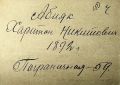 Р Ч
Авидж
Харитон Никитович
1892 г.
Пограничная - 59.